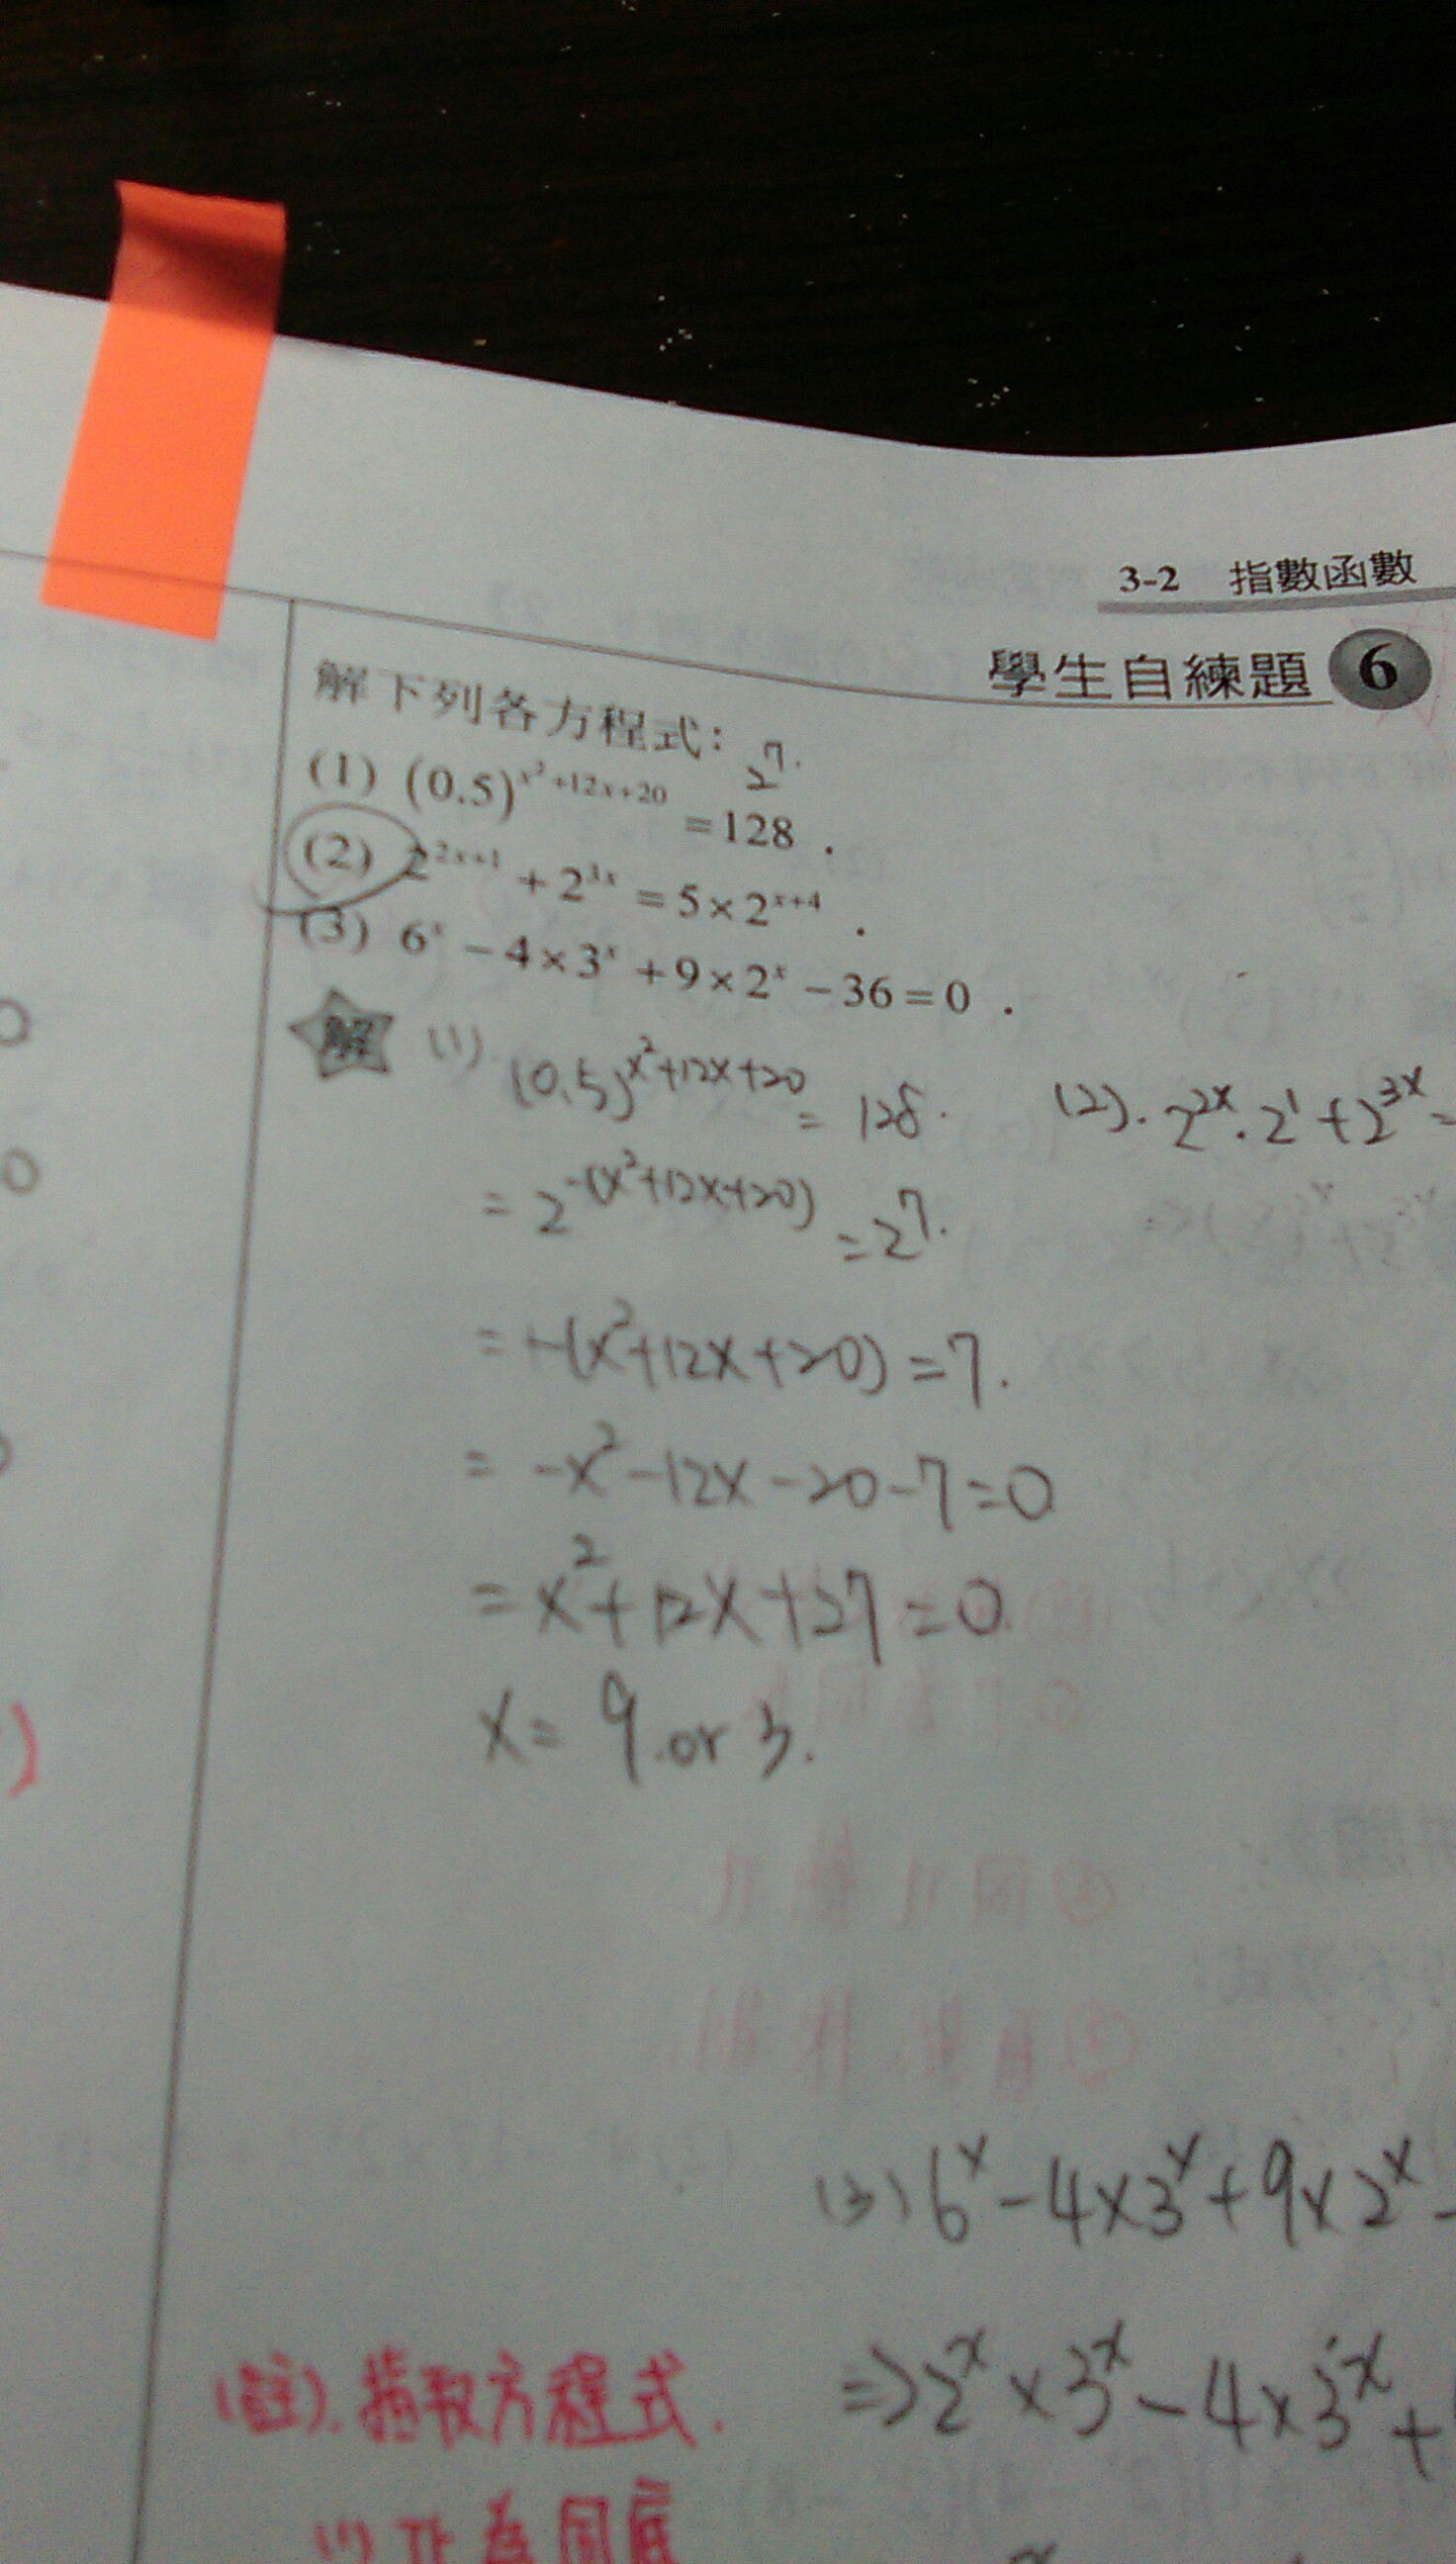 3-2 指數函數
學生自練題 6
解下列各方程式：
2⁷.
(1) (0.5)^{x²+12x+20} = 128 .
(2) 2^{2x+1} + 2^{3x} = 5 × 2^{x+4} .
(3) 6^x − 4 × 3^x + 9 × 2^x − 36 = 0 .
解 (1) (0.5)^{x²+12x+20} = 128.
= 2^{-(x²+12x+20)} = 2⁷.
= -(x²+12x+20) = 7.
= -x²-12x-20-7=0
= x²+12x+27=0.
x= 9 or 3.
(2). 2^{2x}·2¹+2^{3x}
(3) 6^x-4×3^x+9×2^x-
⇒2^x×3^x-4×3^x+
(註). 指數方程式.
(1) 為同底